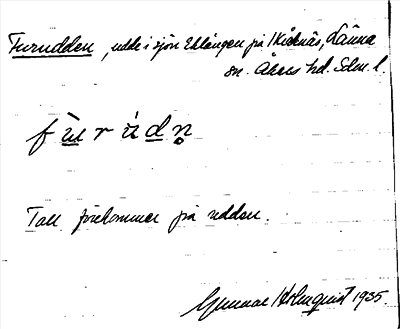 Furudden, udde i sjön Eklången på Kieknäs, Länna
sn. Åkers hd. Sdm. l.
fu̲r u̲d̲n̥
Tall förekommer på udden.
Gunnar Holmquist 1935.